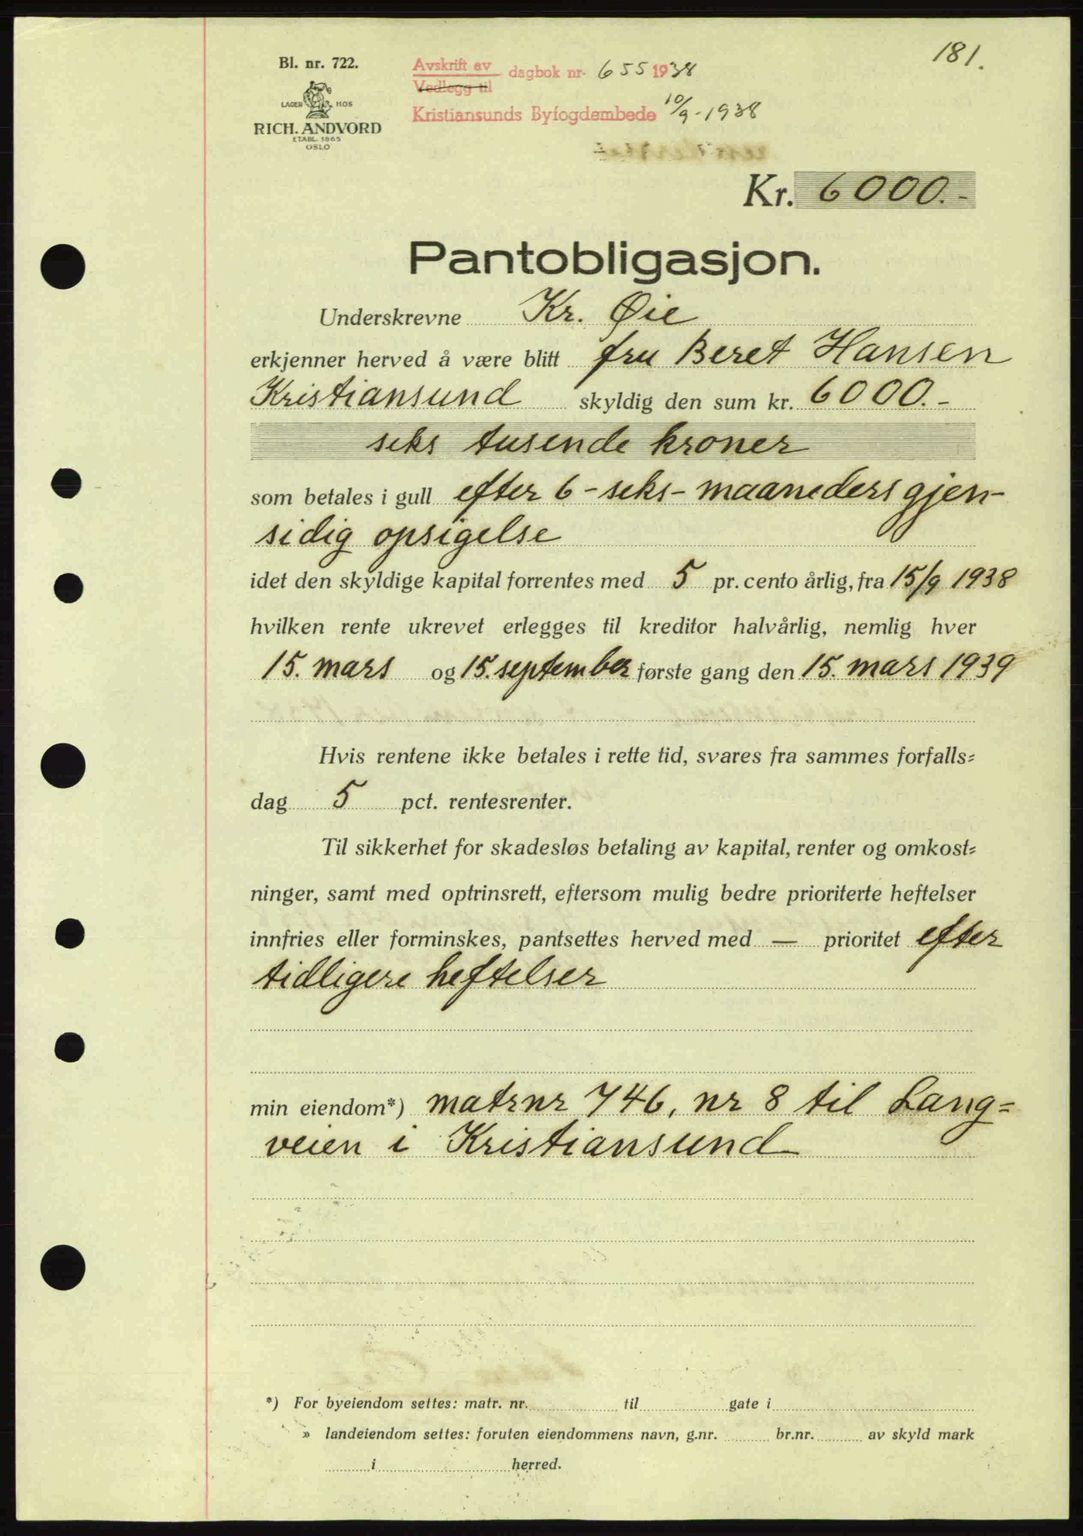 181.
Bl. nr. 722.
LAGER HOS
RICH. ANDVORD
ETABL. 1865
OSLO
Avskrift av
Vedlegg til
dagbok nr. 655 1938
Kristiansunds Byfogdembede 10/9-1938
Kr. 6000.-
Pantobligasjon.
Underskrevne Kr. Øie
erkjenner herved å være blitt fru Beret Hansen
Kristiansund skyldig den sum kr. 6000.-
seks tusende kroner
som betales i gull efter 6-seks-maaneders gjen-
sidig opsigelse
idet den skyldige kapital forrentes med 5 pr. cento årlig, fra 15/9 1938
hvilken rente ukrevet erlegges til kreditor halvårlig, nemlig hver
15. mars og 15. september første gang den 15. mars 1939
Hvis rentene ikke betales i rette tid, svares fra sammes forfalls=
dag 5 pct. rentesrenter.
Til sikkerhet for skadesløs betaling av kapital, renter og omkost=
ninger, samt med optrinsrett, eftersom mulig bedre prioriterte heftelser
innfries eller forminskes, pantsettes herved med — prioritet efter
tidligere heftelser
min eiendom*) matrnr 746, nr 8 til Lang=
veien i Kristiansund
*) For byeiendom settes: matr. nr. til gate i
» landeiendom settes: foruten eiendommens navn, g.nr. br.nr. av skyld mark
i herred.